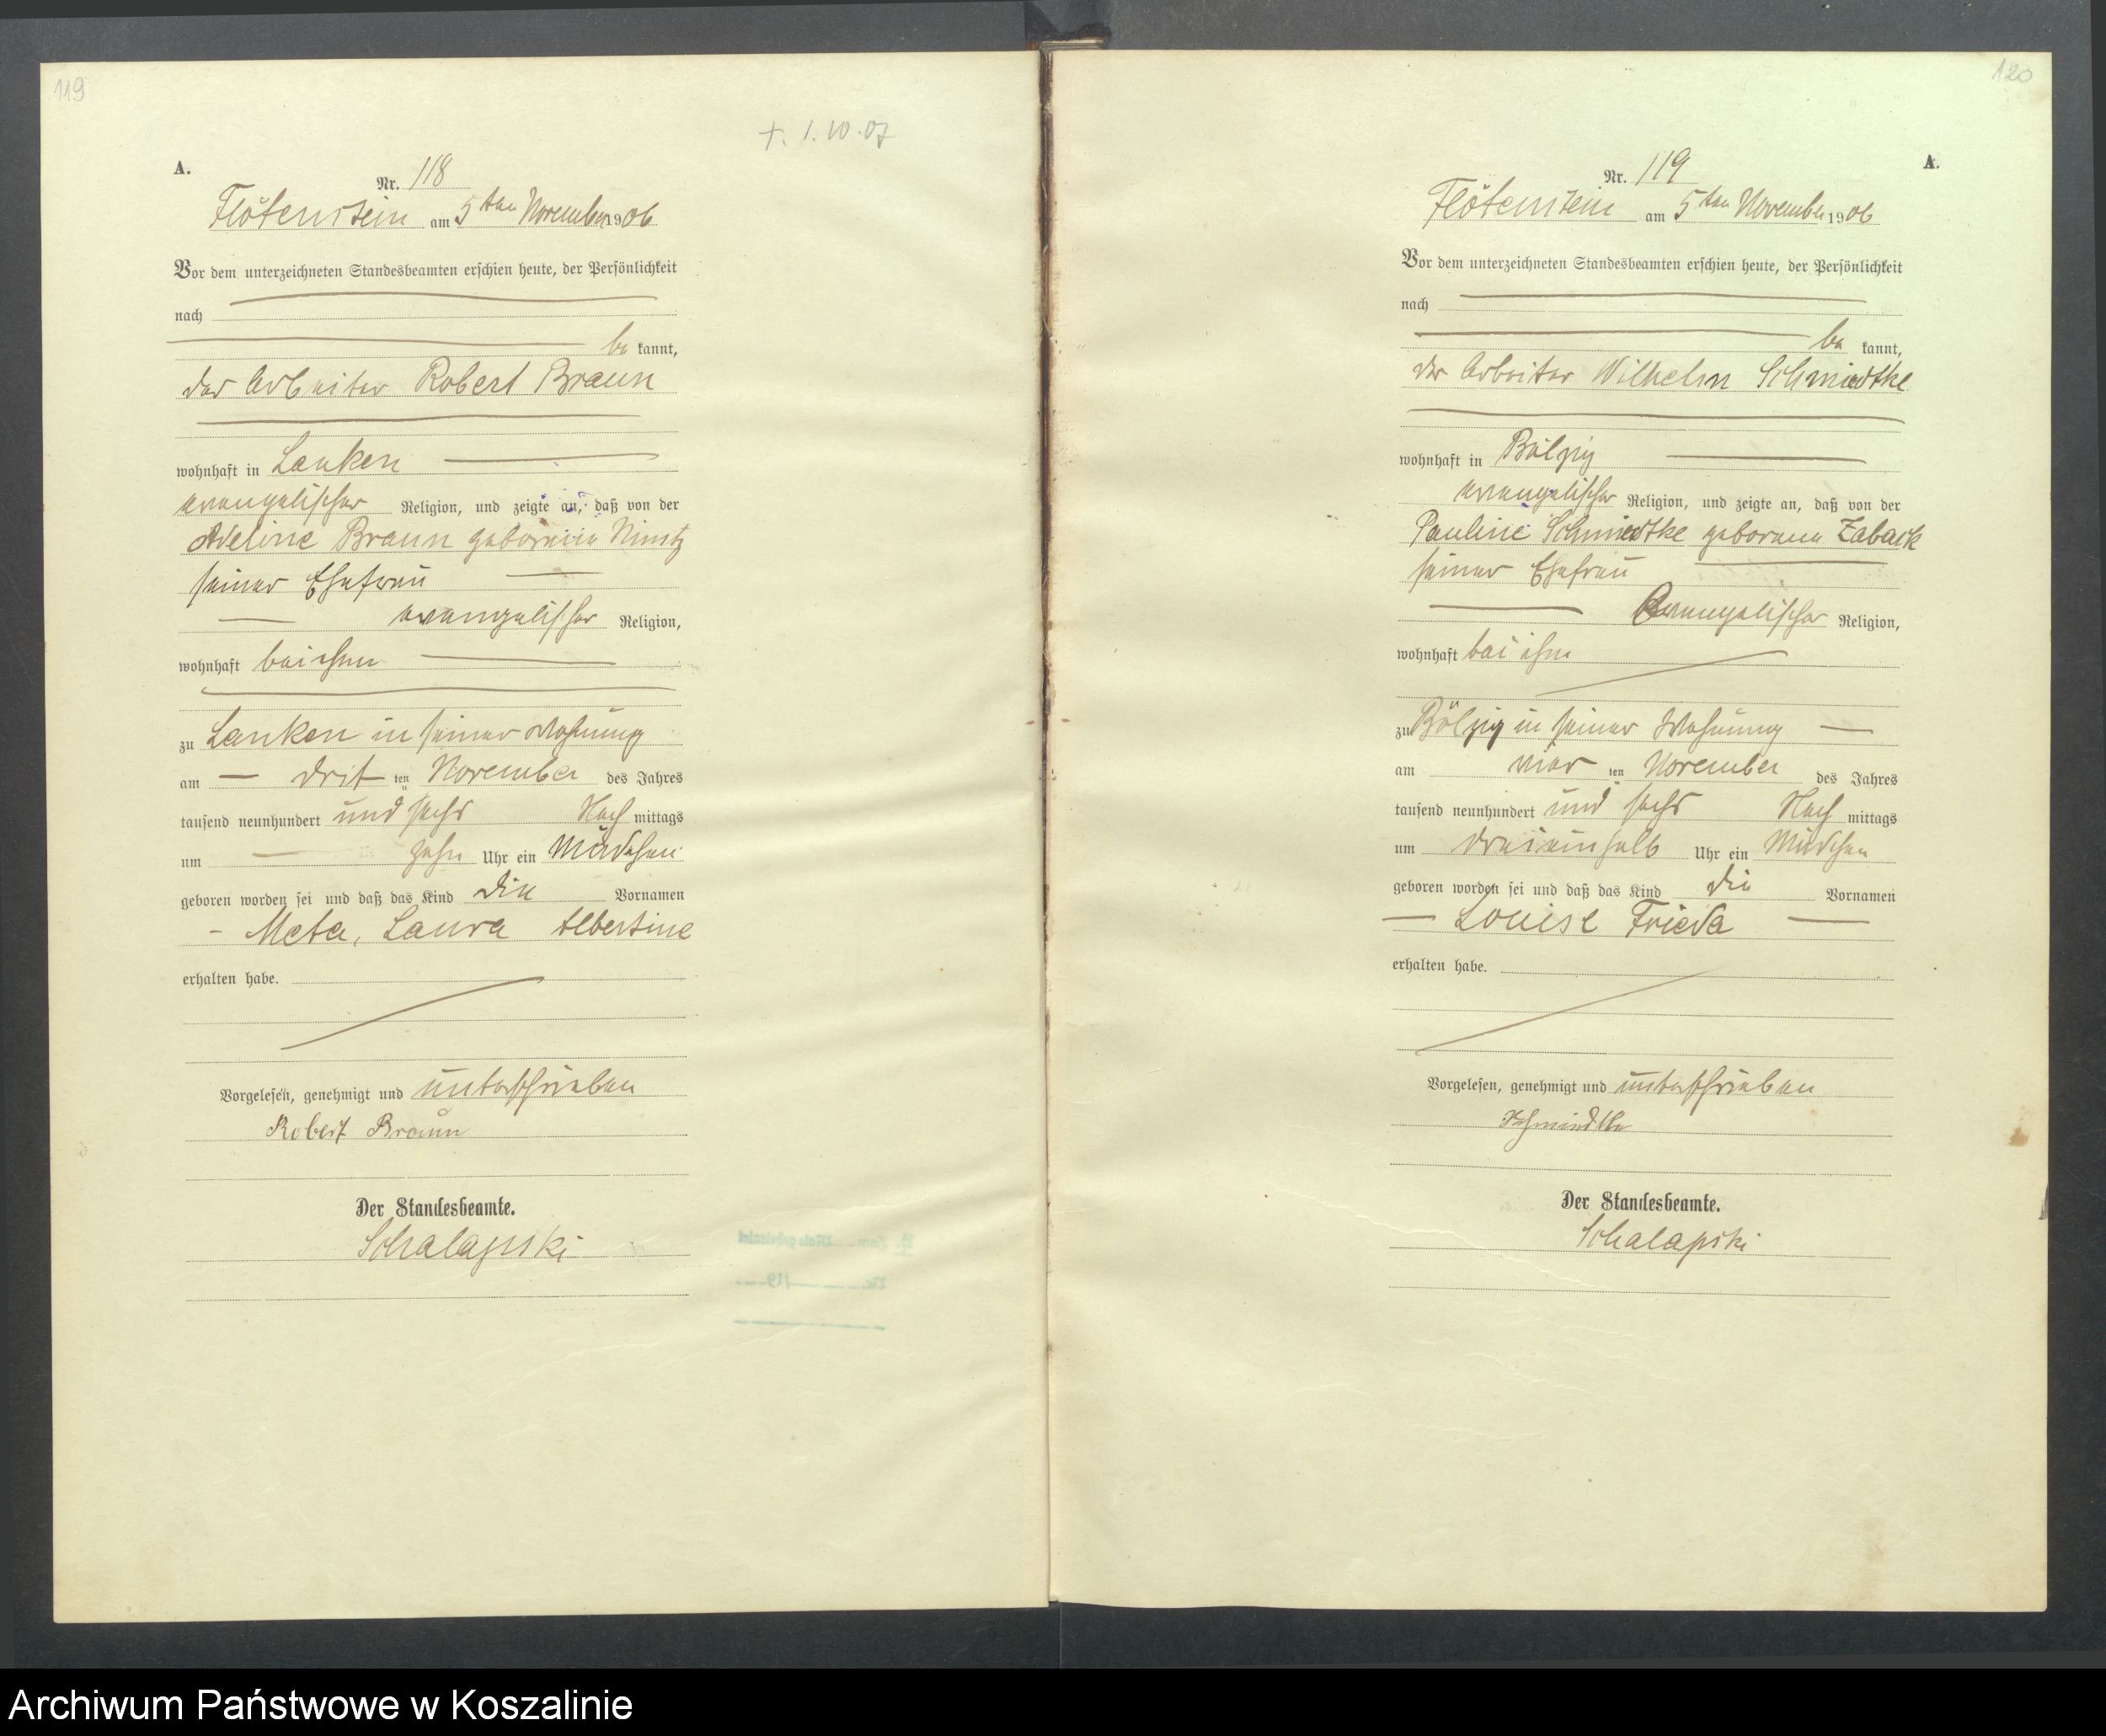 119
+. 1.10.07
A.
Nr. 118
Flötenstein am 5ten November 1906
Vor dem unterzeichneten Standesbeamten erschien heute, der Persönlichkeit
nach
be kannt,
der Arbeiter Robert Braun
wohnhaft in Lanken
evangelischer Religion, und zeigte an, daß von der
Adeline Braun geborenen Nimtz
seiner Ehefrau
evangelischer Religion,
wohnhaft bei ihm
zu Lanken in seiner Wohnung
am drit ten November des Jahres
tausend neunhundert und sechs Nach mittags
um zehn Uhr ein Mädchen
geboren worden sei und daß das Kind die Vornamen
- Meta, Laura Albertine
erhalten habe.
Vorgelesen, genehmigt und unterschrieben
Robert Braun
Der Standesbeamte.
Schalapski
120
A.
Nr. 119
Flötenstein am 5ten November 1906
Vor dem unterzeichneten Standesbeamten erschien heute, der Persönlichkeit
nach
be kannt,
der Arbeiter Wilhelm Schmidtke
wohnhaft in Bölzig
evangelischer Religion, und zeigte an, daß von der
Pauline Schmidtke geborene Zaback
seiner Ehefrau
Evangelischer Religion,
wohnhaft bei ihm
zu Bölzig in seiner Wohnung
am vier ten November des Jahres
tausend neunhundert und sechs Nach mittags
um dreieinhalb Uhr ein Mädchen
geboren worden sei und daß das Kind die Vornamen
Louise Frieda
erhalten habe.
Vorgelesen, genehmigt und unterschrieben
Schmidtke
Der Standesbeamte.
Schalapski
Archiwum Państwowe w Koszalinie